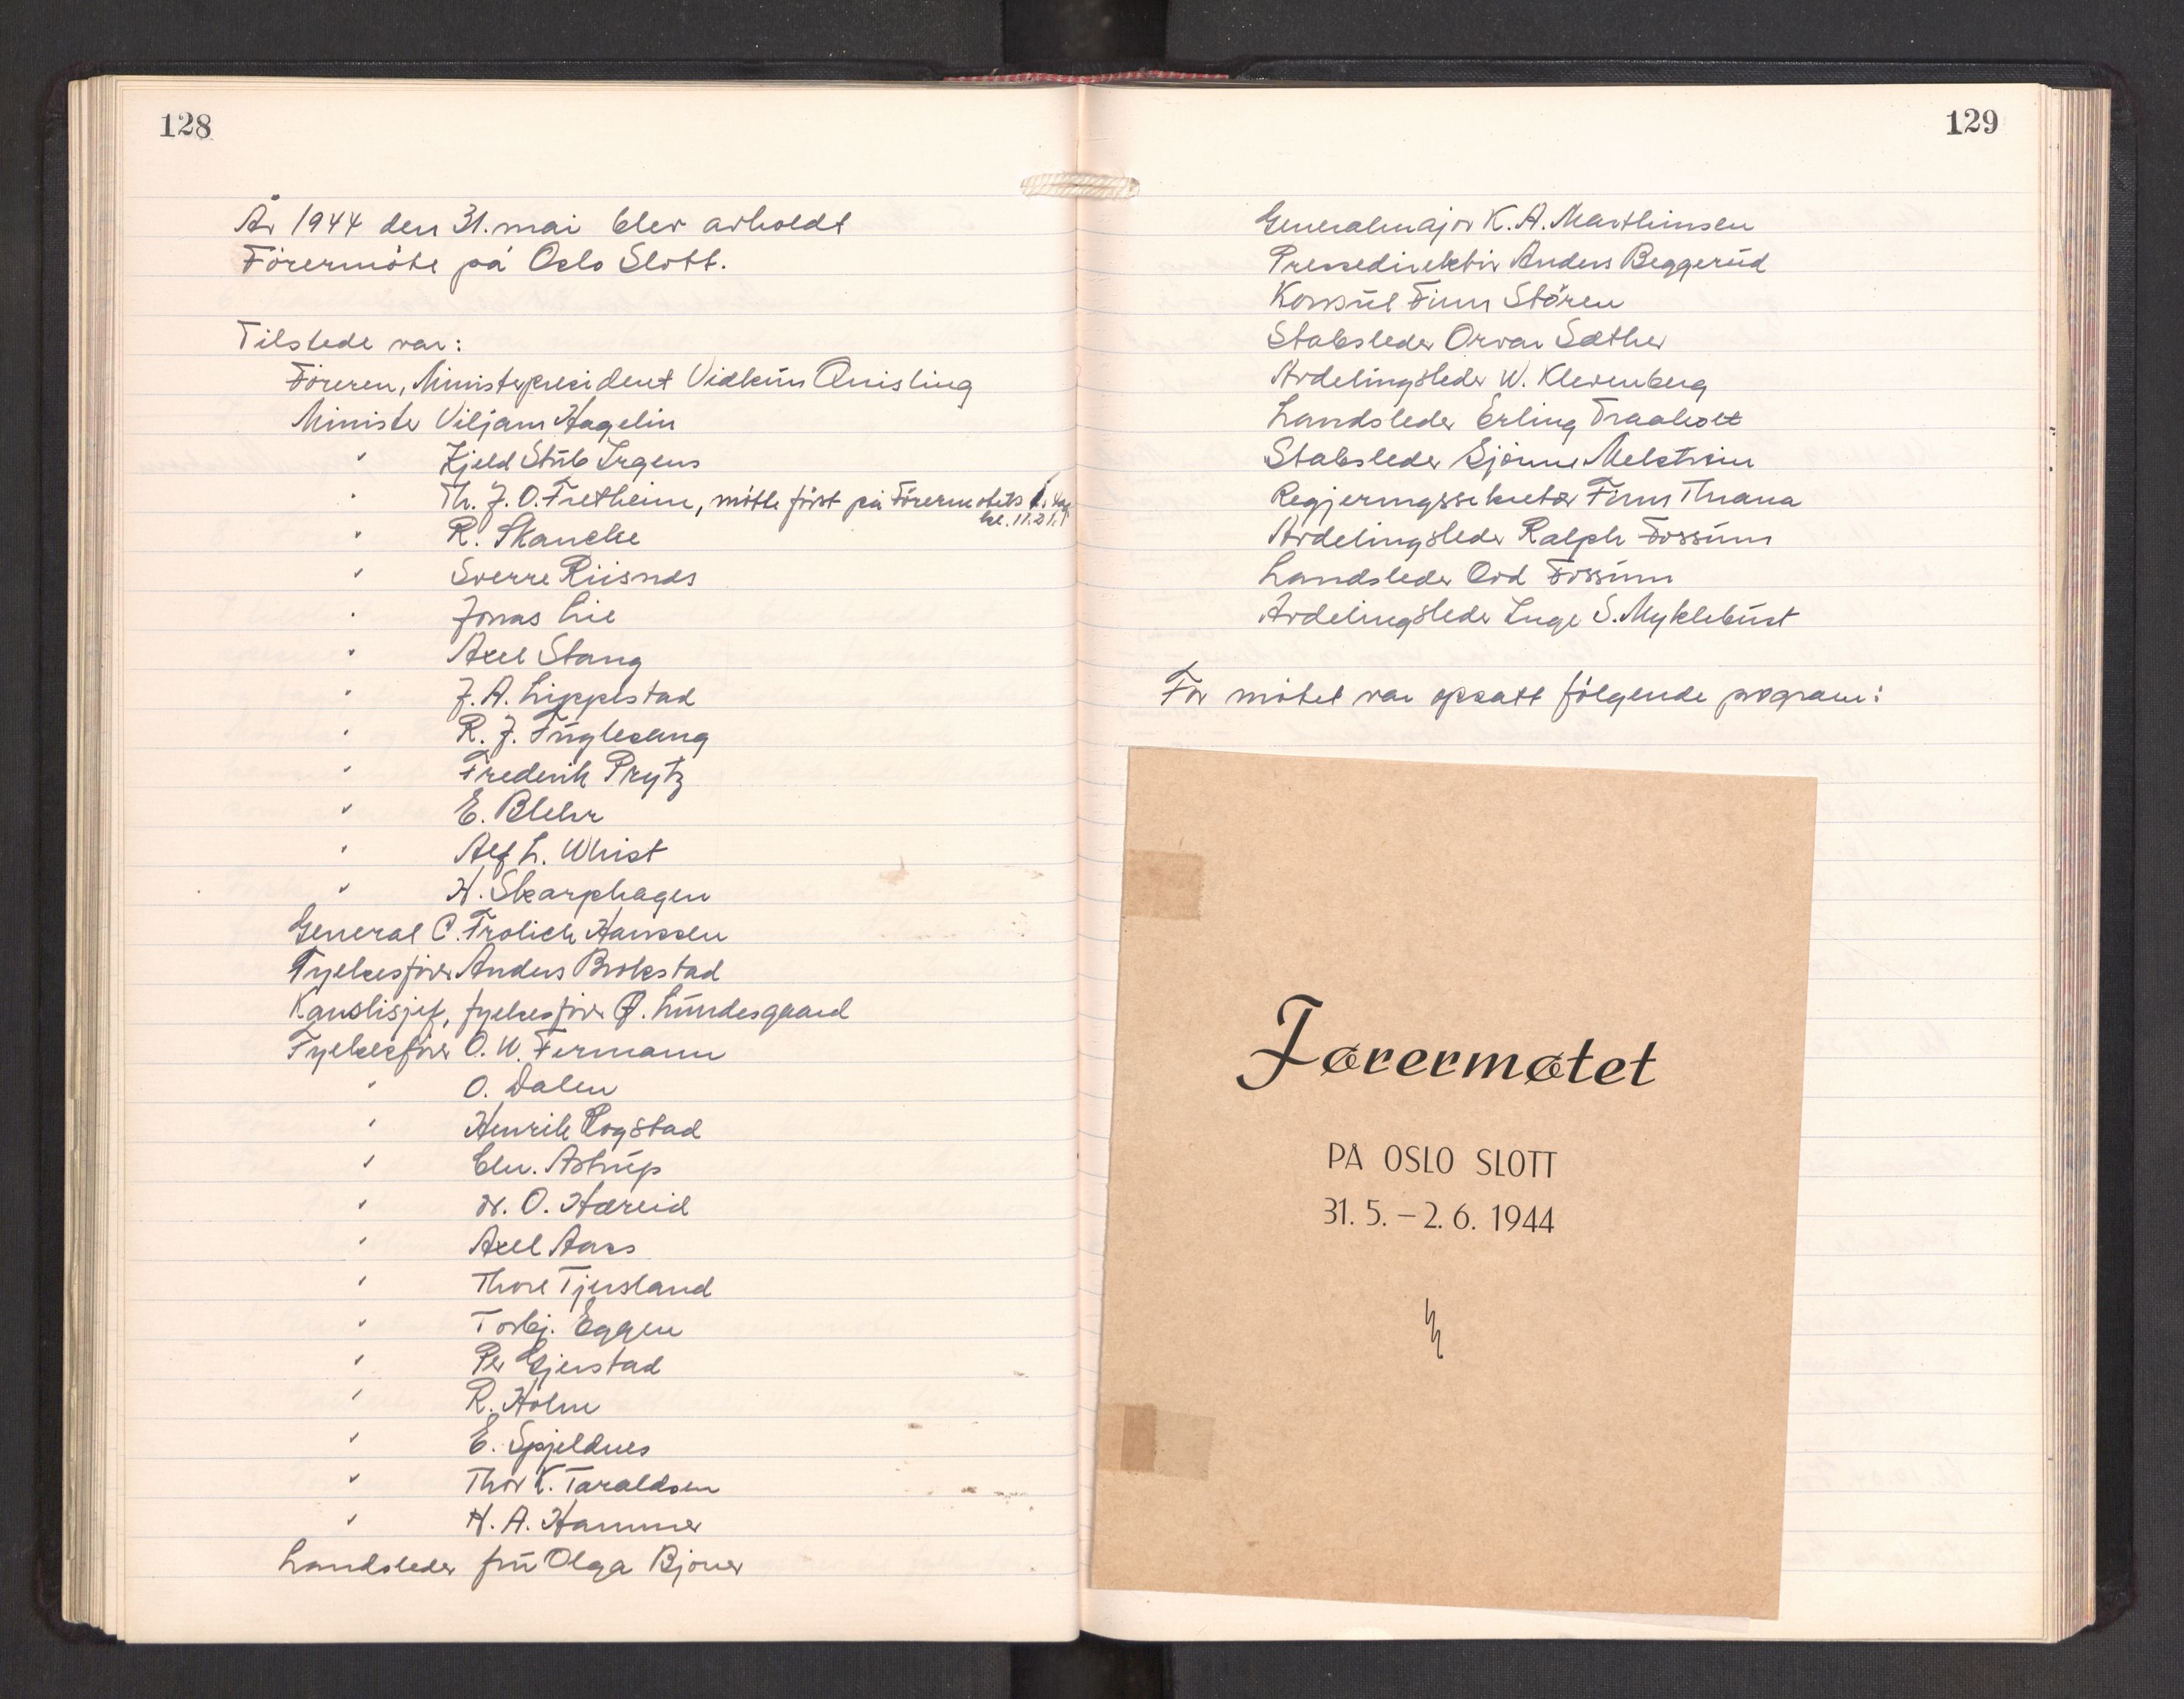 128
År 1944 den 31. mai blev avholdt
Førermøte på Oslo Slott.
Tilstede var:
Föreren, Ministerpresident Vidkun Quisling
Minister Viljam Hagelin
" Kjeld Stub Irgens
" Th. J. O. Fretheim, møtte først på Førermøtets 1. dag
kl. 11.21
" R. Skancke
" Sverre Riisnæs
" Jonas Lie
" Axel Stang
" J. A. Lippestad
" R. J. Fuglesang
" Frederik Prytz
" E. Blehr
" Alf L. Whist
" H. Skarphagen
General C. Frolich Hanssen
Fylkesfører Anders Brokstad
Kanslisjef, fylkesfører Ø. Lundesgaard
Fylkesfører O. W. Fermann
" O. Dalen
" Henrik Rogstad
" Chr. Astrup
" H. O. Hæreid
" Axel Aass
" Thore Tjersland
" Torbj. Eggen
" Per Gjerstad
" R. Holm
" E. Spjeldnes
" Thor K. Taraldsen
" H. A. Hammer
Landsleder fru Olga Bjoner
129
Generalmajor K. A. Marthinsen
Pressedirektør Anders Beggerud
Konsul Finn Støren
Stabsleder Orvar Sæther
Avdelingsleder W. Klevenberg
Landsleder Erling Traaholt
Stabsleder Sjønne Melstrøm
Regjeringssekretær Finn Thrana
Avdelingsleder Ralph Fossum
Landsleder Odd Fossum
Avdelingsleder Inge S. Myklebust
For møtet var opsatt følgende program:
Førermøtet
PÅ OSLO SLOTT
31. 5. – 2. 6. 1944